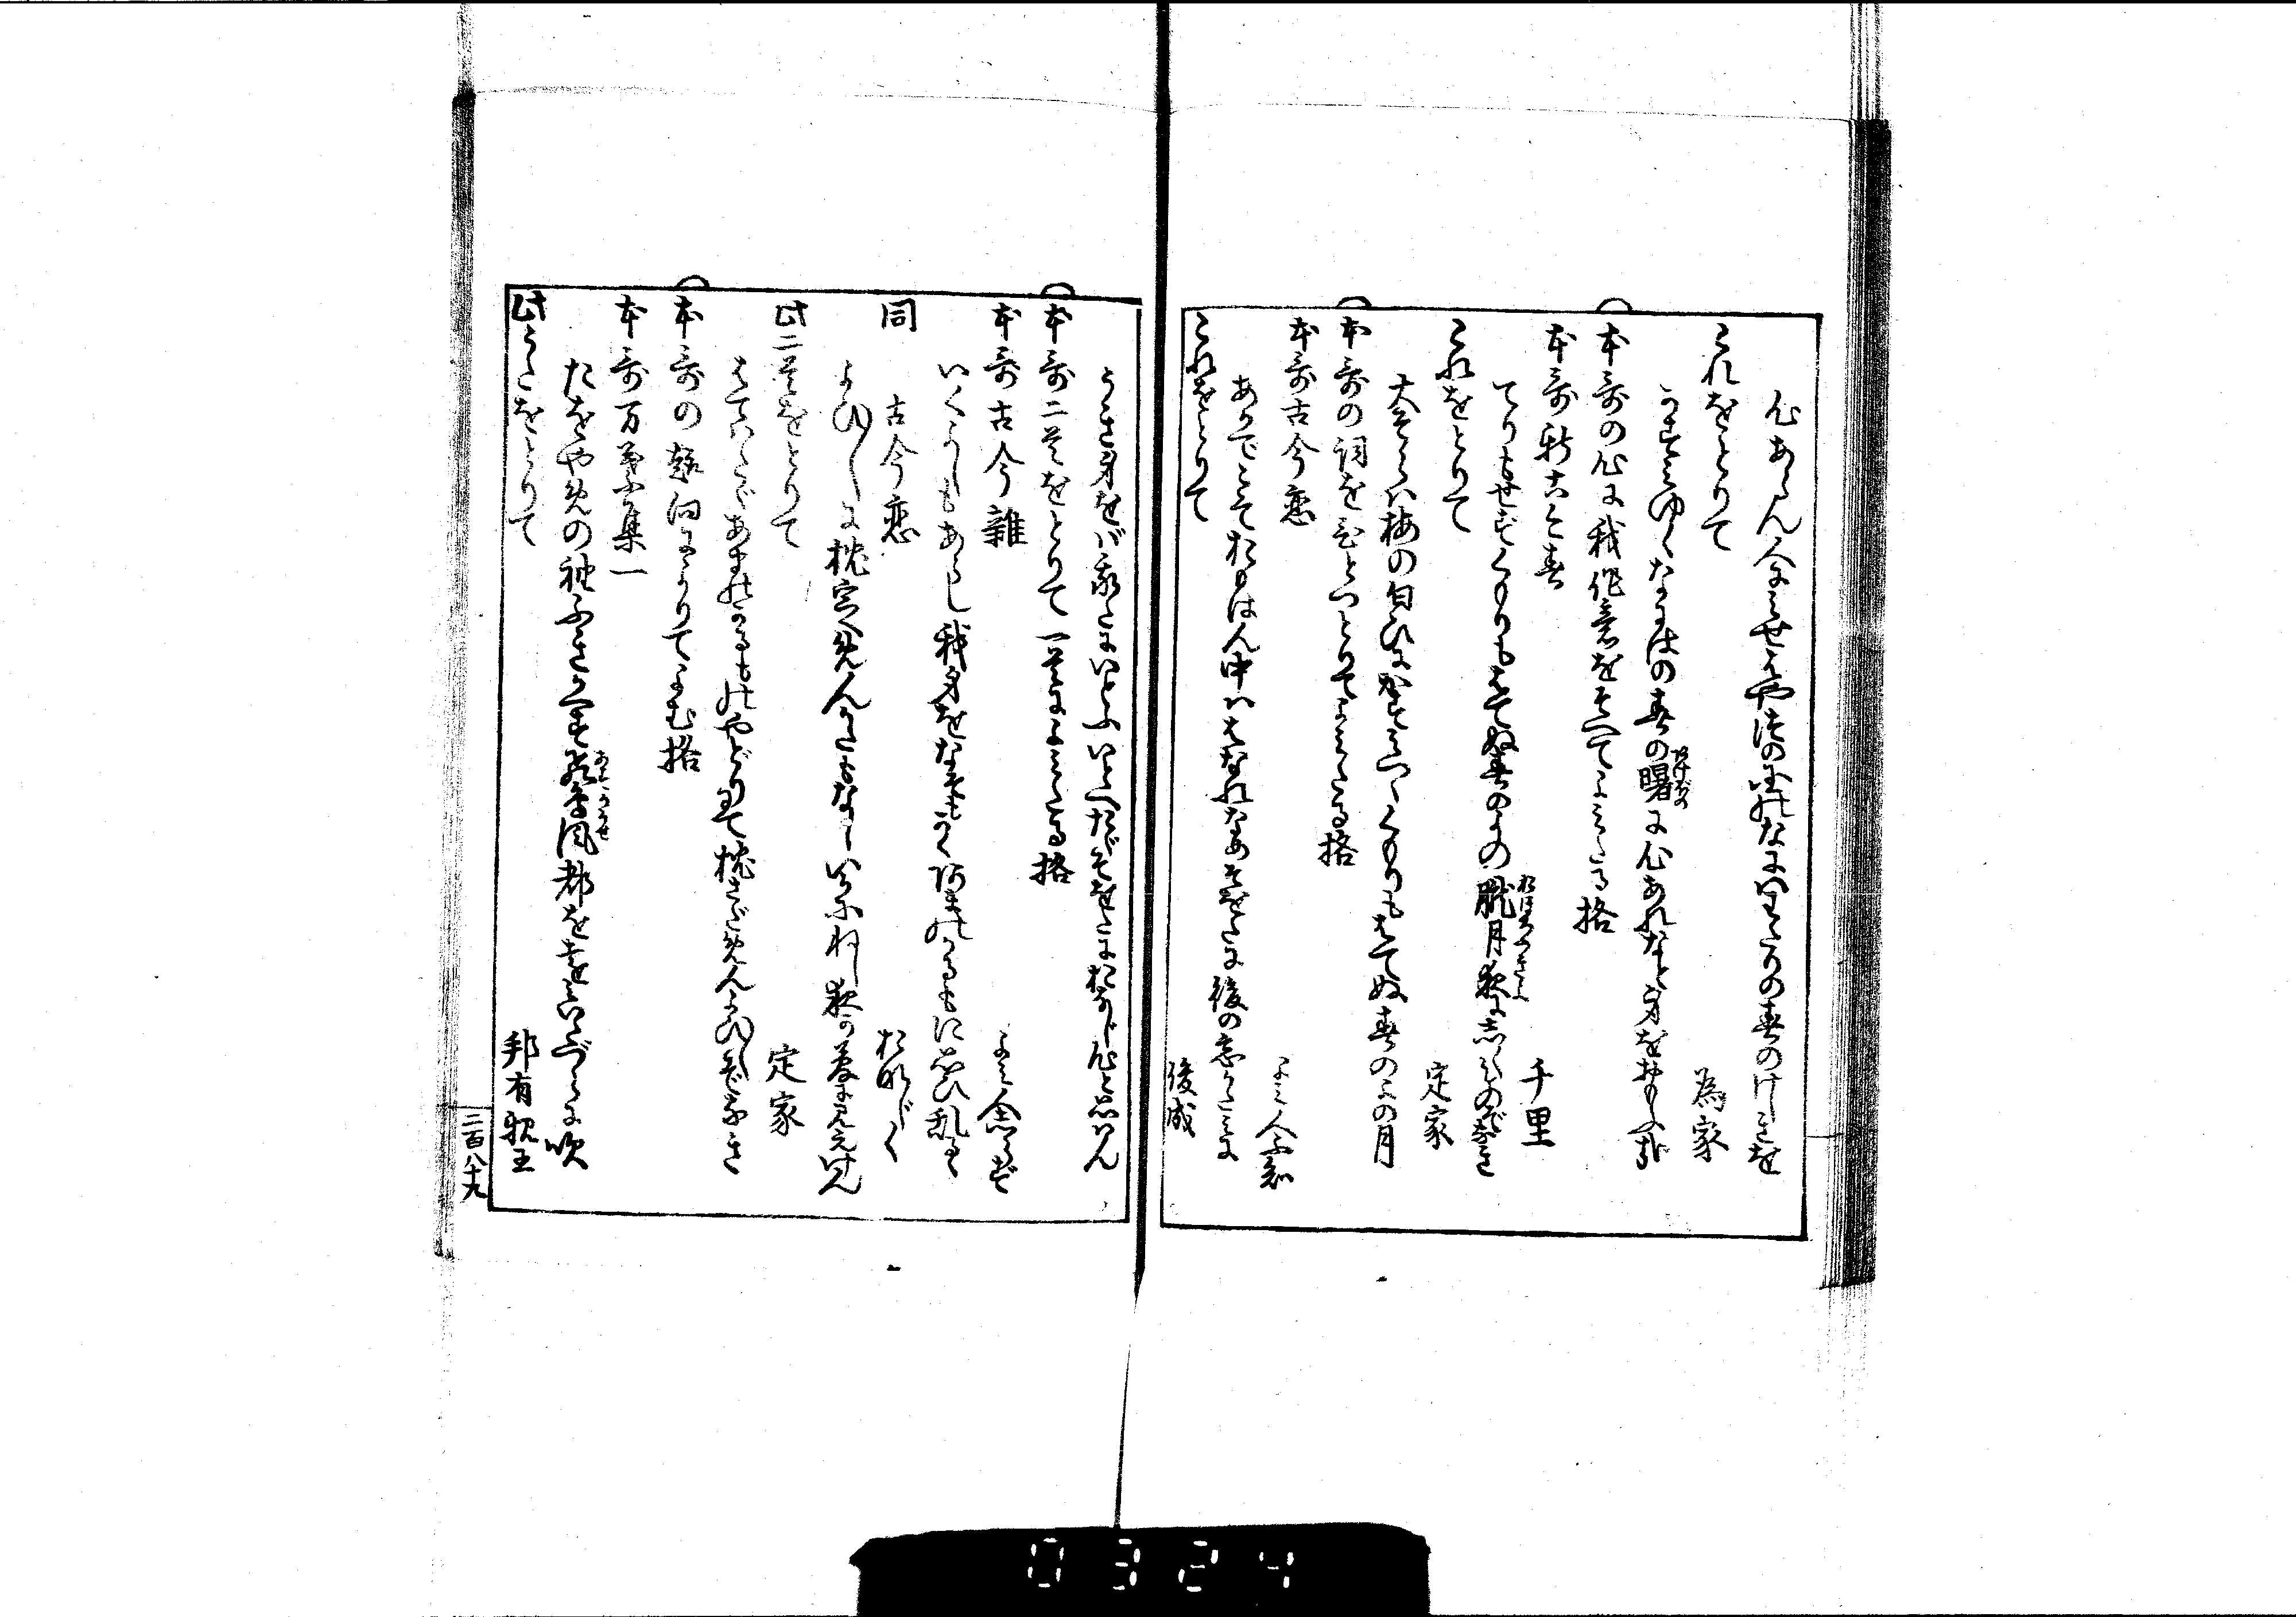 心あらん人にみせばや津の国のなにはわたりの春のけしきを
これをとりて　為家
かすみゆくなにはの春の曙に心あれなと身をおもふ哉
あけぼの
本哥の心に我作意をそへてよみたる格
本哥新古今春　千里
てりもせずくもりもはてぬ春のよの朧月夜にしくものぞなき
おぼろづきよ
これをとりて　定家
大そらは梅の匂ひにかすみつゝくもりもはてぬ春のよの月
本哥の詞をひとつとりてよみたる格
本哥古今恋　よみ人不知
ありとてたのはん中ははなれなめそをだに後の忘かたみに
これをとりて　俊成
うき身をば我だにいとふいとへたゞそをだにおなじ心と思はん
本哥二首をとりて一首によみたる格
本哥古今雑　よみ人しらず
いくよしもあらじ我身をなぞもかくあまのかるもに思ひ乱るゝ
同　古今恋　おなじく
よひ〳〵に枕定めんかたもなしいかにねし夜か夢に見えけん
此二首をとりて　定家
はてはたゞあまのかるものやどりにて枕さだめんよひ〳〵ぞなき
本哥の題向によりてよむ格
本哥万葉集一
たをやめの袖ふきかへす飛鳥風都を遠みいたづらに吹
あすかかぜ
此うたをとりて　邦有親王
二百八十九
0324